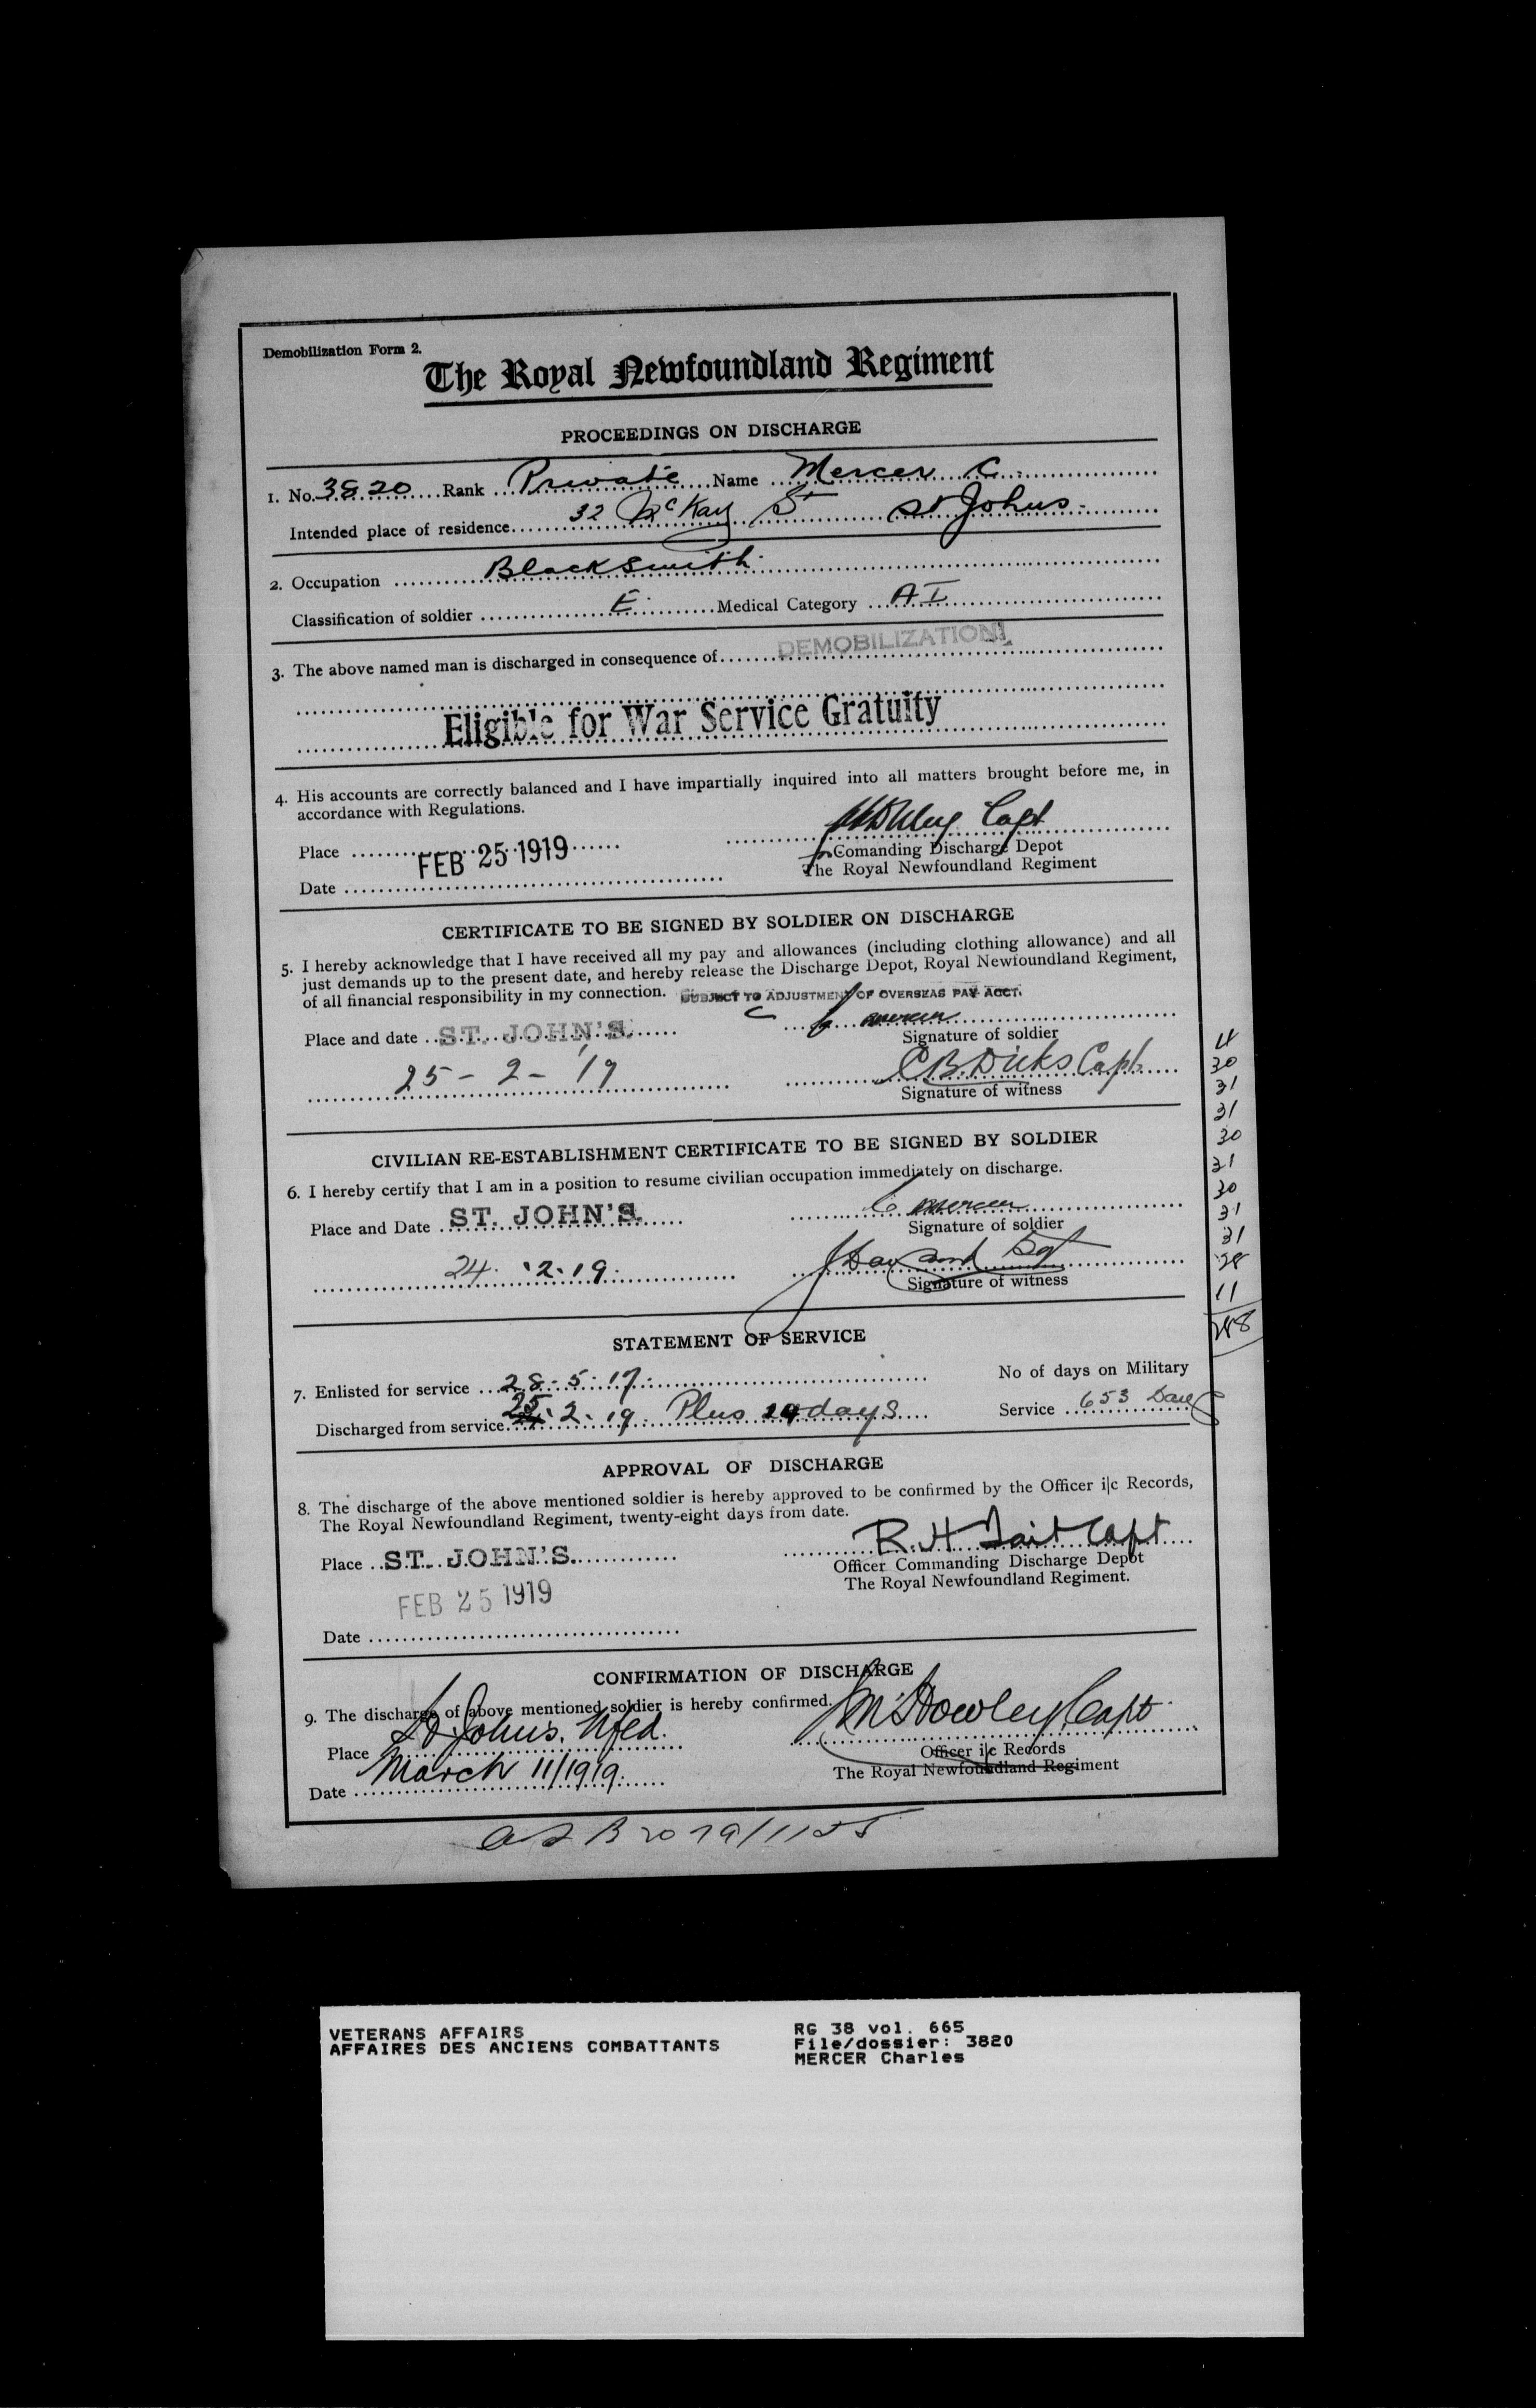 Demobilization Form 2.
The Royal Newfoundland Regiment
PROCEEDINGS ON DISCHARGE
1. No. 3820 Rank Private Name Mercer C.
Intended place of residence 32 McKay St St Johns.
2. Occupation Blacksmith
Classification of soldier E. Medical Category A I
3. The above named man is discharged in consequence of DEMOBILIZATION
Eligible for War Service Gratuity
4. His accounts are correctly balanced and I have impartially inquired into all matters brought before me, in
accordance with Regulations.
Capt
Place
FEB 25 1919
Comanding Discharge Depot
The Royal Newfoundland Regiment
Date
CERTIFICATE TO BE SIGNED BY SOLDIER ON DISCHARGE
5. I hereby acknowledge that I have received all my pay and allowances (including clothing allowance) and all
just demands up to the present date, and hereby release the Discharge Depot, Royal Newfoundland Regiment,
of all financial responsibility in my connection. SUBJECT TO ADJUSTMENT OF OVERSEAS PAY ACCT.
Place and date ST. JOHN'S. C Mercer
Signature of soldier
25 - 2 - '19 C B Dicks Capt.
Signature of witness
CIVILIAN RE-ESTABLISHMENT CERTIFICATE TO BE SIGNED BY SOLDIER
6. I hereby certify that I am in a position to resume civilian occupation immediately on discharge.
Place and Date ST. JOHN'S. C Mercer
Signature of soldier
24. 2. 19.
Signature of witness
4
30
31
31
30
31
30
31
31
28
11
288
STATEMENT OF SERVICE
7. Enlisted for service 28. 5. 17. No of days on Military
Discharged from service 25. 2. 19. Plus 14 days Service 653 Days
APPROVAL OF DISCHARGE
8. The discharge of the above mentioned soldier is hereby approved to be confirmed by the Officer i|c Records,
The Royal Newfoundland Regiment, twenty-eight days from date.
Place ST. JOHN'S. R. H Tait Capt
Officer Commanding Discharge Depot
The Royal Newfoundland Regiment.
FEB 25 1919
Date
CONFIRMATION OF DISCHARGE
9. The discharge of above mentioned soldier is hereby confirmed.
Place St. John's. Nfld. Howley, Capt.
Officer i|c Records
The Royal Newfoundland Regiment
Date March 11/1919.
VETERANS AFFAIRS
AFFAIRES DES ANCIENS COMBATTANTS
RG 38 vol. 665
File/dossier: 3820
MERCER Charles